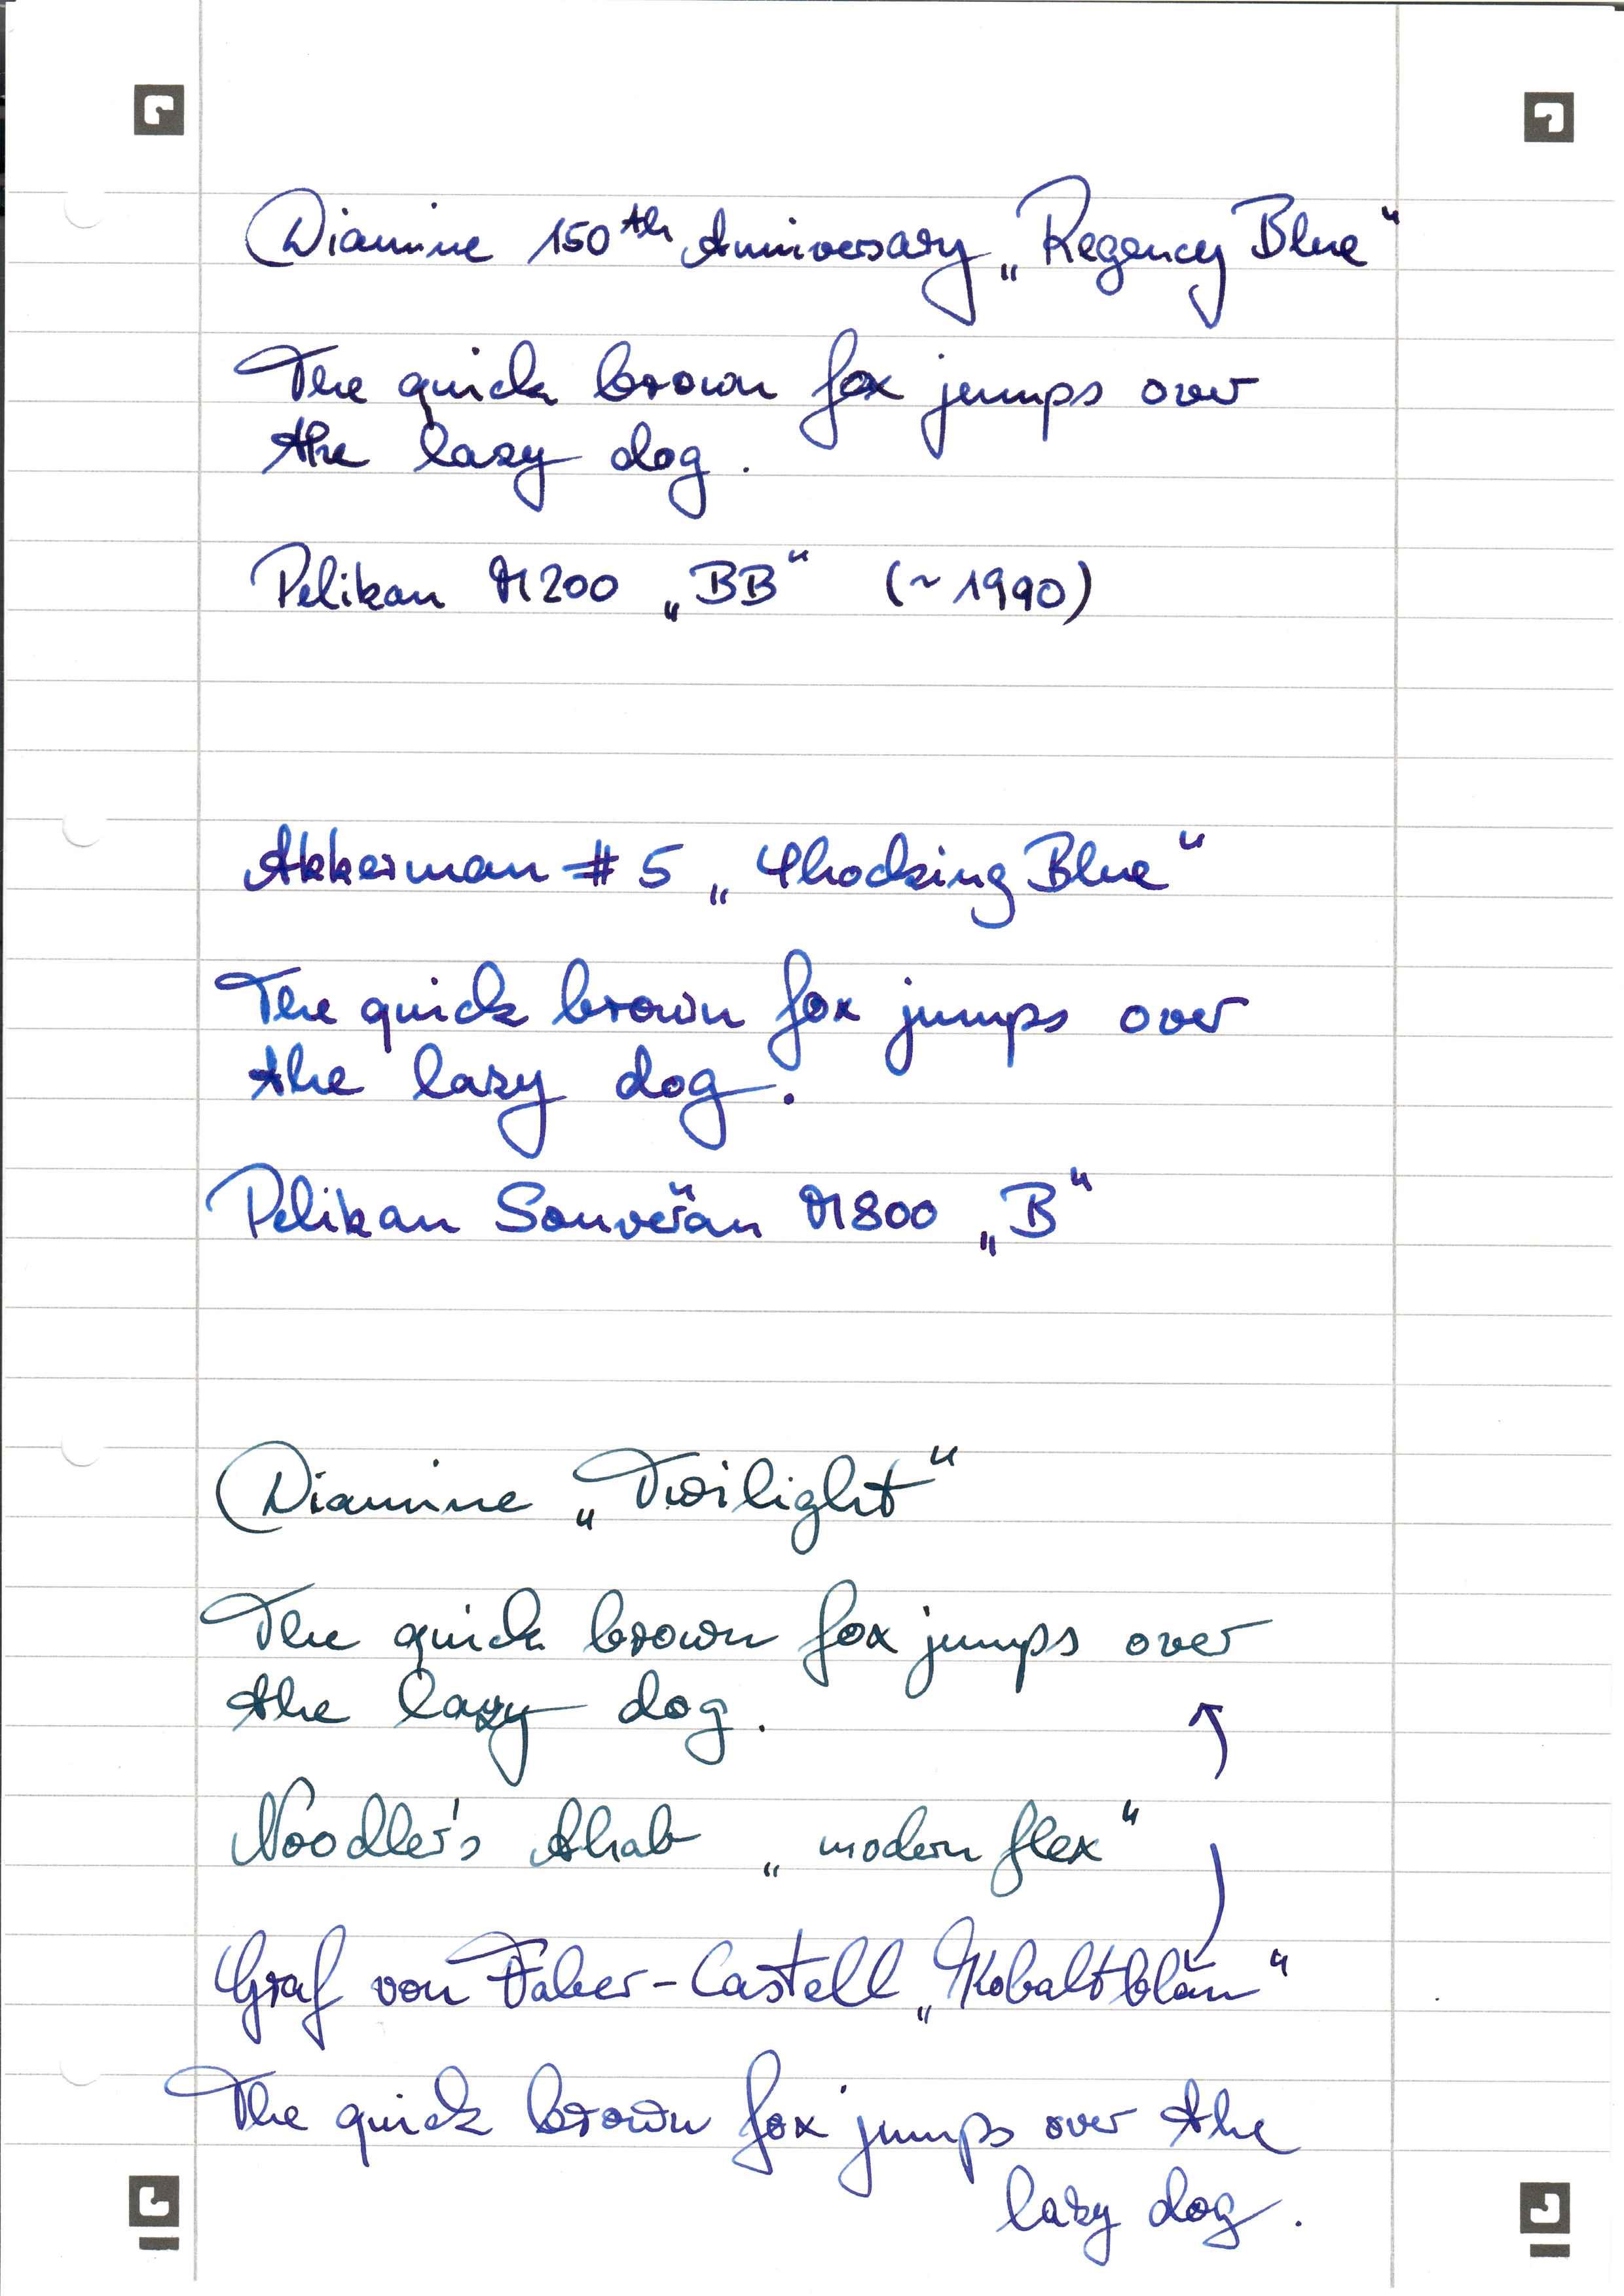 Diamine 150th Anniversary „Regency Blue“
The quick brown fox jumps over
the lazy dog.
Pelikan M200 „BB“ (~1990)
Akkerman #5 „Shocking Blue“
The quick brown fox jumps over
the lazy dog.
Pelikan Souverän M800 „B“
Diamine „Twilight“
The quick brown fox jumps over
the lazy dog.
Noodler's Ahab „modern flex“
Graf von Faber-Castell „Kobaltblau“
The quick brown fox jumps over the
lazy dog.